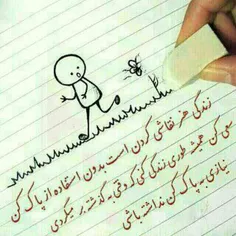 زندگی هنر نقاشی کردن است بدون استفاده از پاک کن
سعی کن همیشه طوری زندگی کنی که وقتی به گذشته برمیگردی
نیازی به پاک کن نداشته باشی